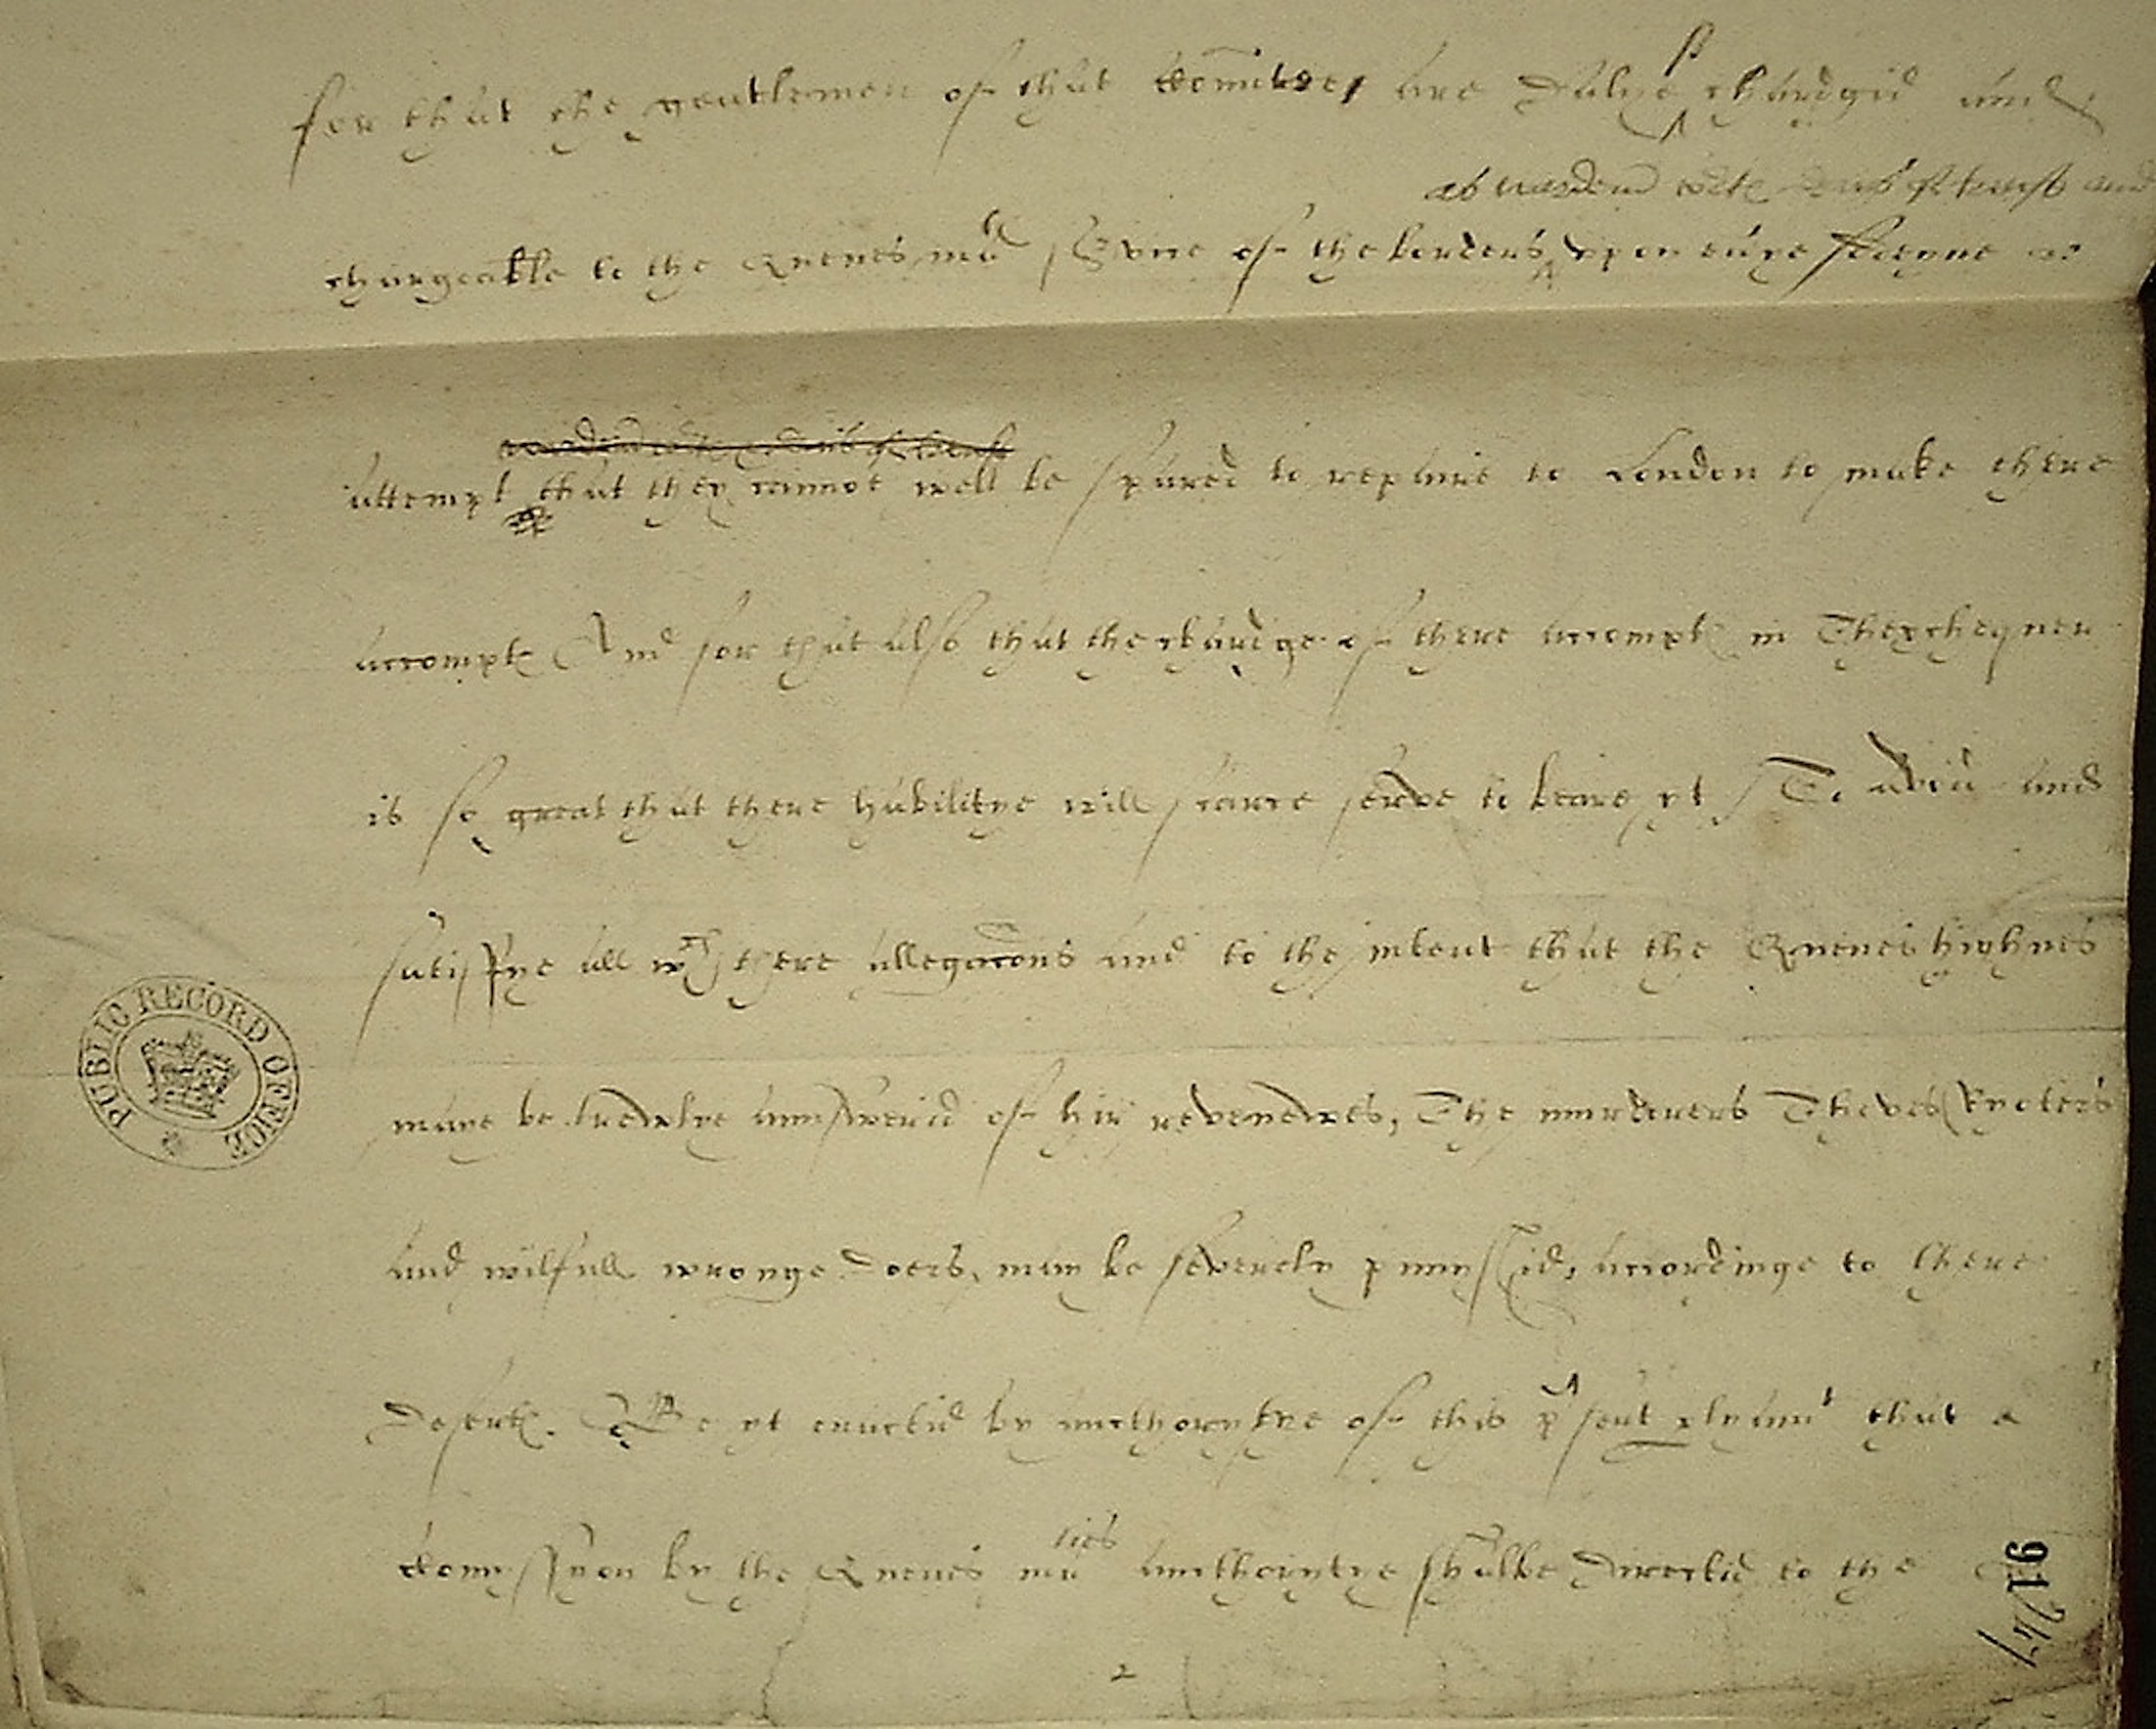 for that the gentlemen of that Countrey are dalye so chardgid and
as wardens
chargeable to the Quenes ma servyce of the borders upon everye
attempt that they cannot well be spared to repaire to London to make there
accompte And for that also that the chardge of there accompte in Thexchequer
is so great that there habilitye will scarce serve to beare yt To avoid and
satisfye all wth there allegacons and to the intent that the Quenes highnes
maye be trewlye aunswerid of hir revenewes, The murderers Theves Ryoters
and wilfull wronge doers, may be severely punyshid, accordinge to there
deserte. Be yt enactid by aucthorytye of this psent plyamt that a
Comyssyon by the Quenes maties aucthorytye shalbe directid to the
PUBLIC RECORD OFFICE
2
91
247